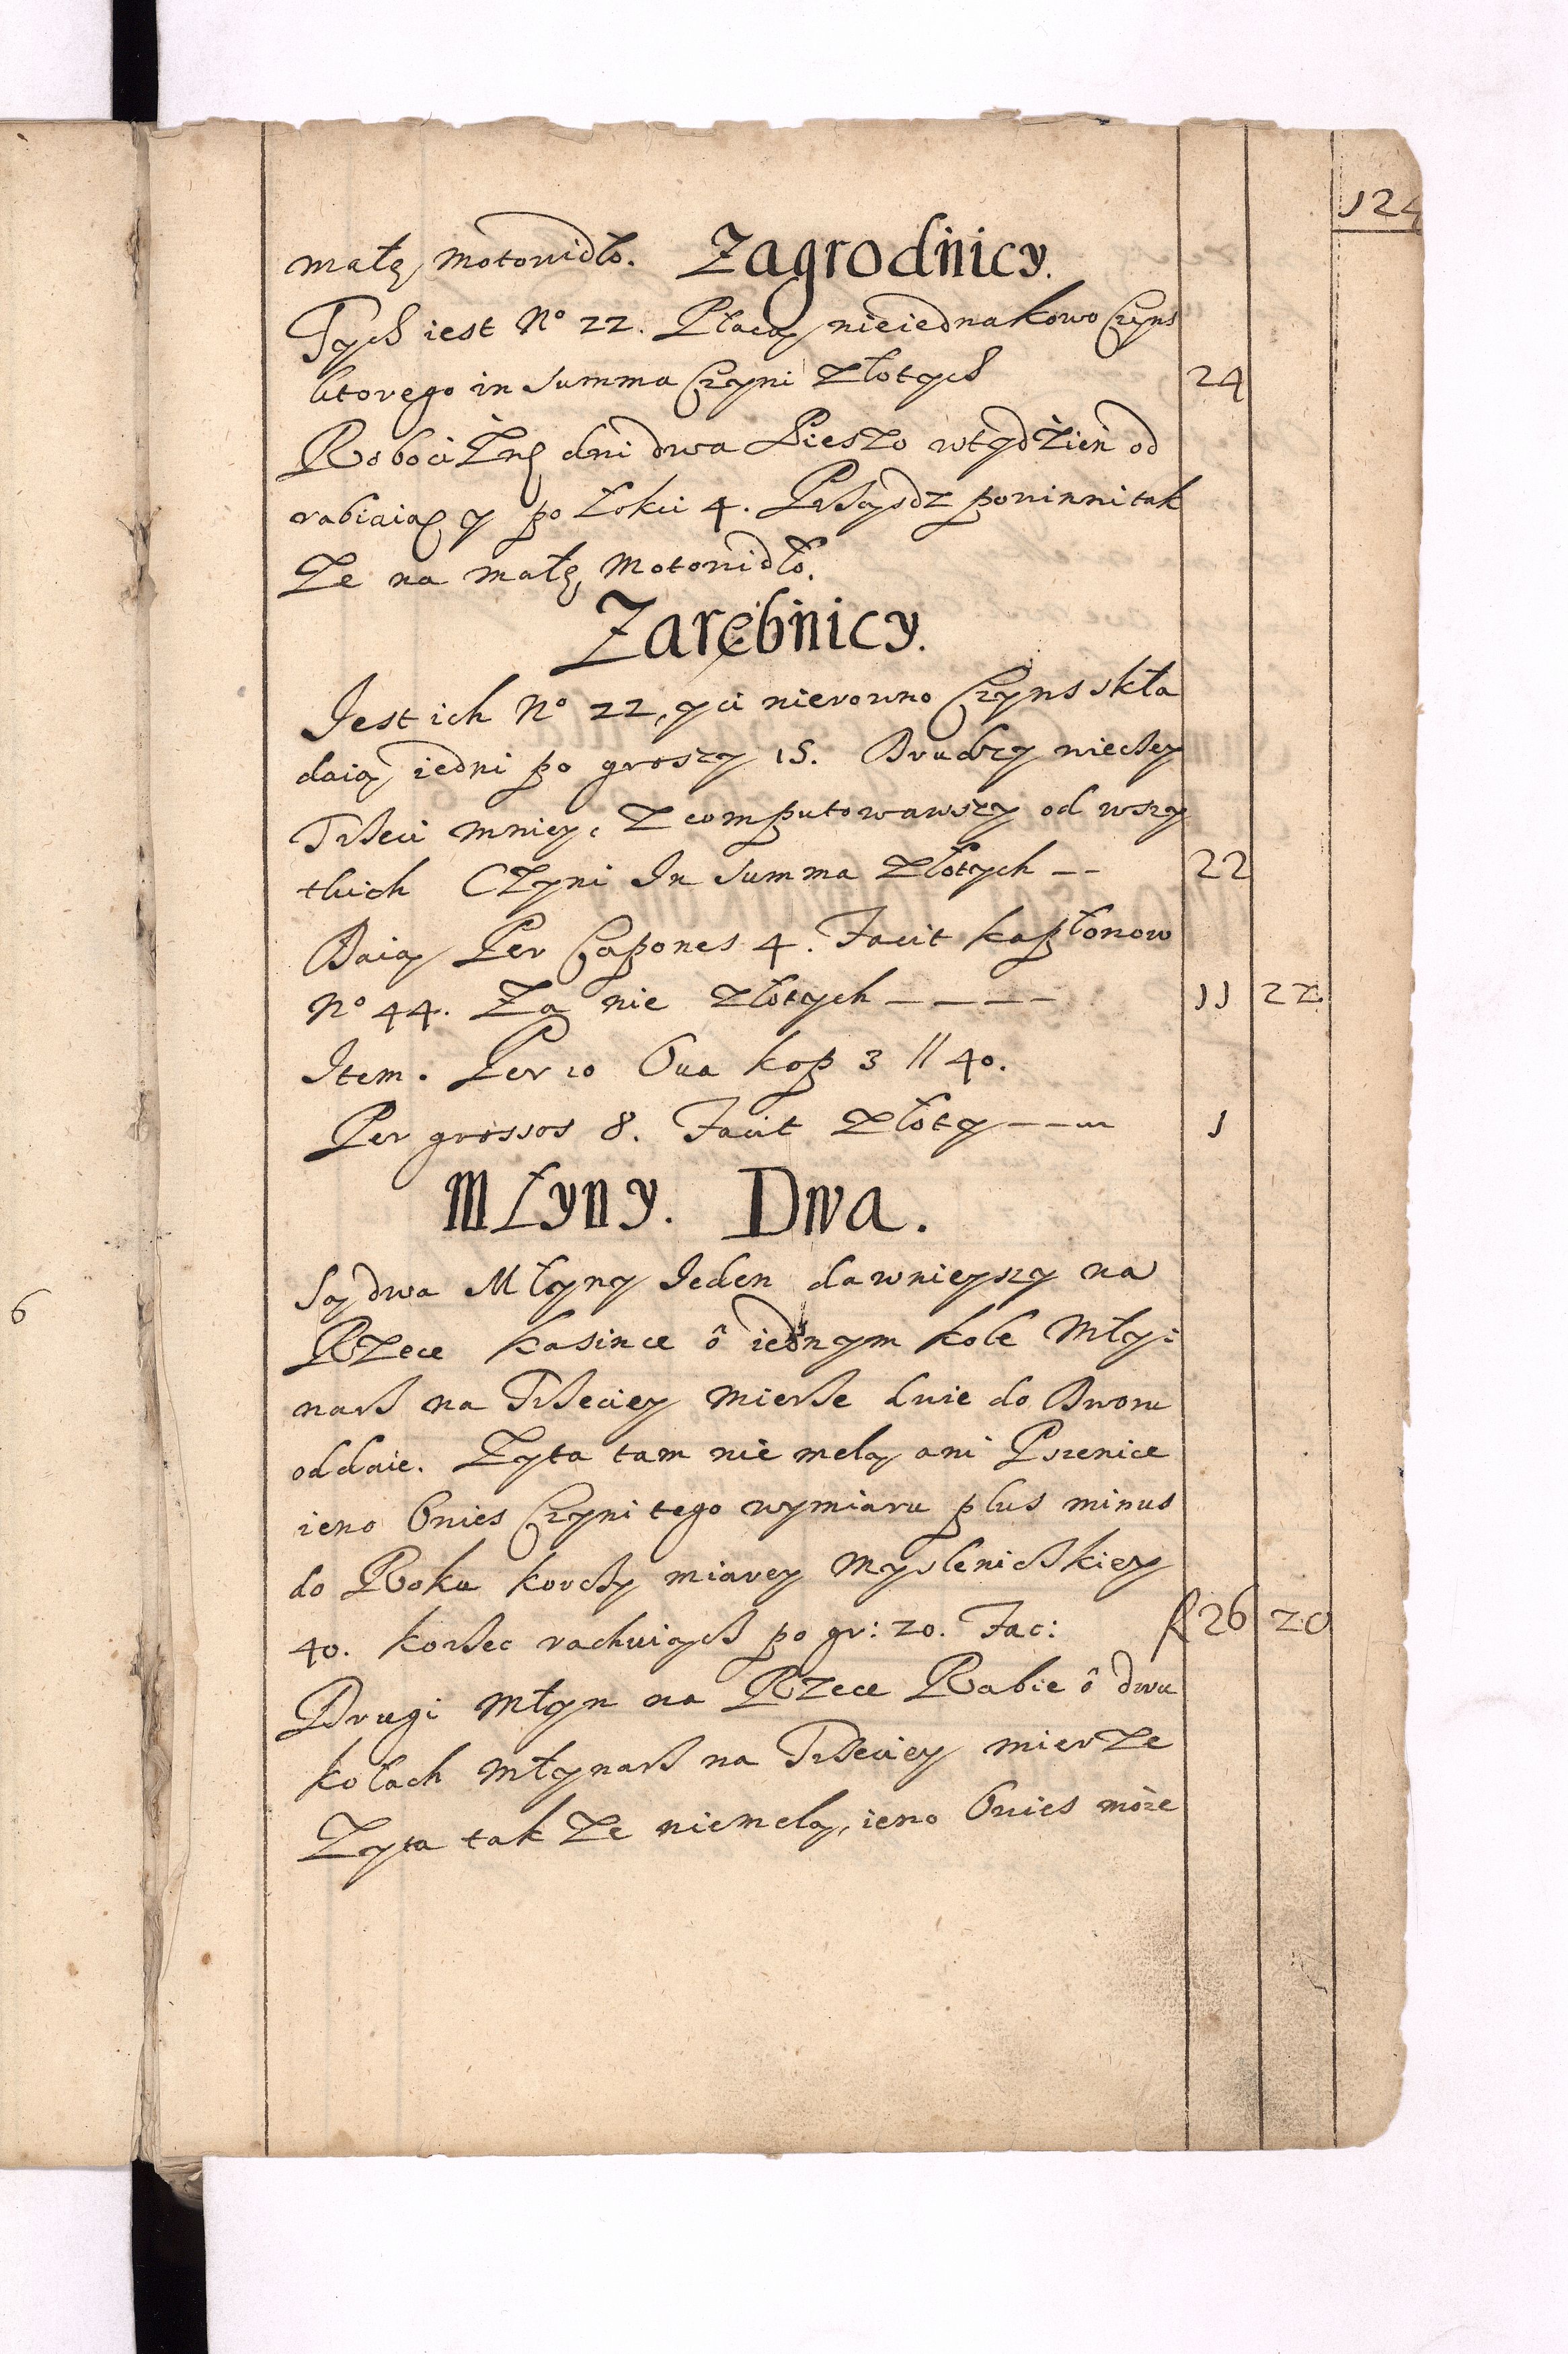 124
małe motowidło. Zagrodnicy.
Tych iest No 22. Płacą nieiednakowo Czyns
ktorego in Summa Czyni Złotych 24
Robociznę dni dwa Pieszo wtydzień od
rabiaią y po Łokci 4. Prząsdz powinni tak
że na małe Motowidło.
Zarębnicy.
Jest ich No 22, y ci nierowno Czyns skła
daią iedni po groszy 15. Drudzy więcey
Trzeci mniey, Zcomputowawszy od wszy
tkich Czyni In Summa Złotych -- 22
Daią Per Capones 4. Facit kapłonow
No 44. Za nie Złotych ---- 11 22
Item. Per 10 Oua kop 3 // 40.
Per grossos 8. Facit Złoty --- 1
Młyny. Dwa.
Są dwa Młyny Jeden dawnieyszy na
Rzece Kasince ô iednym kole Mły:
narz na Trzeciey mierze dwie do Dworu
oddaie. Żyta tam nie melą ani Pszenice
ieno Owies Czyni tego wymiaru plus minus
do Roku korcy miarey Myslenickiey
40. korzec rachuiąch po gr: 20. Fac: f 26 20
Drugi Młyn na Rzece Rabie ô dwu
kołach Młynarz na Trzeciey mierze
Żyta także niemelą, ieno Owies może
6